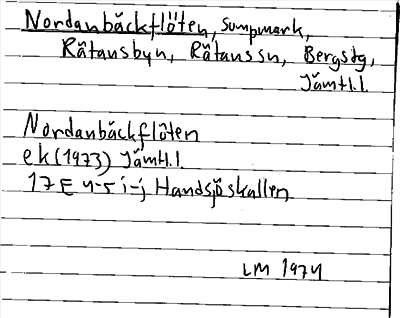 Nordanbäckflöten, Sumpmark,
Rätansbyn, Rätanssn, Bergstg,
Jämtl.l.
Nordanbäckflöten
ek (1973) Jämtl.l
17E 4-5 i-j Handsjöskallen
LM 1974